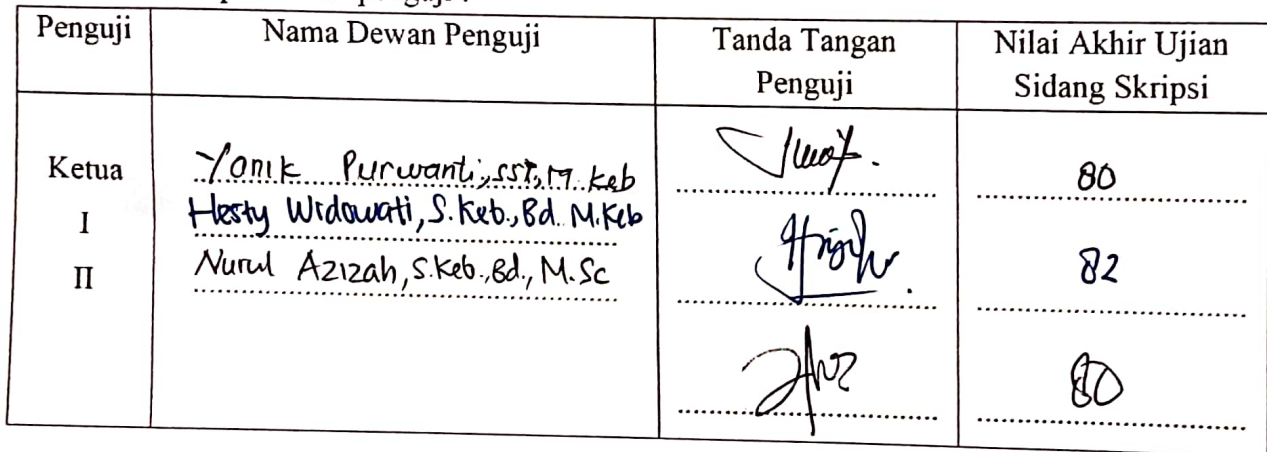 Penguji Nama Dewan Penguji Tanda Tangan Penguji Nilai Akhir Ujian Sidang Skripsi
Ketua Yonik Purwanti, SST, M. Keb 80
I Hesty Widowati, S.Keb., Bd. M.Keb 82
II Nurul Azizah, S.Keb., Bd., M.Sc 80